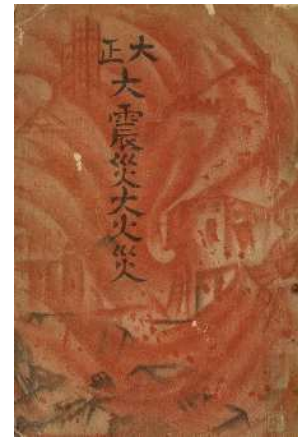 大正
大震災大火災